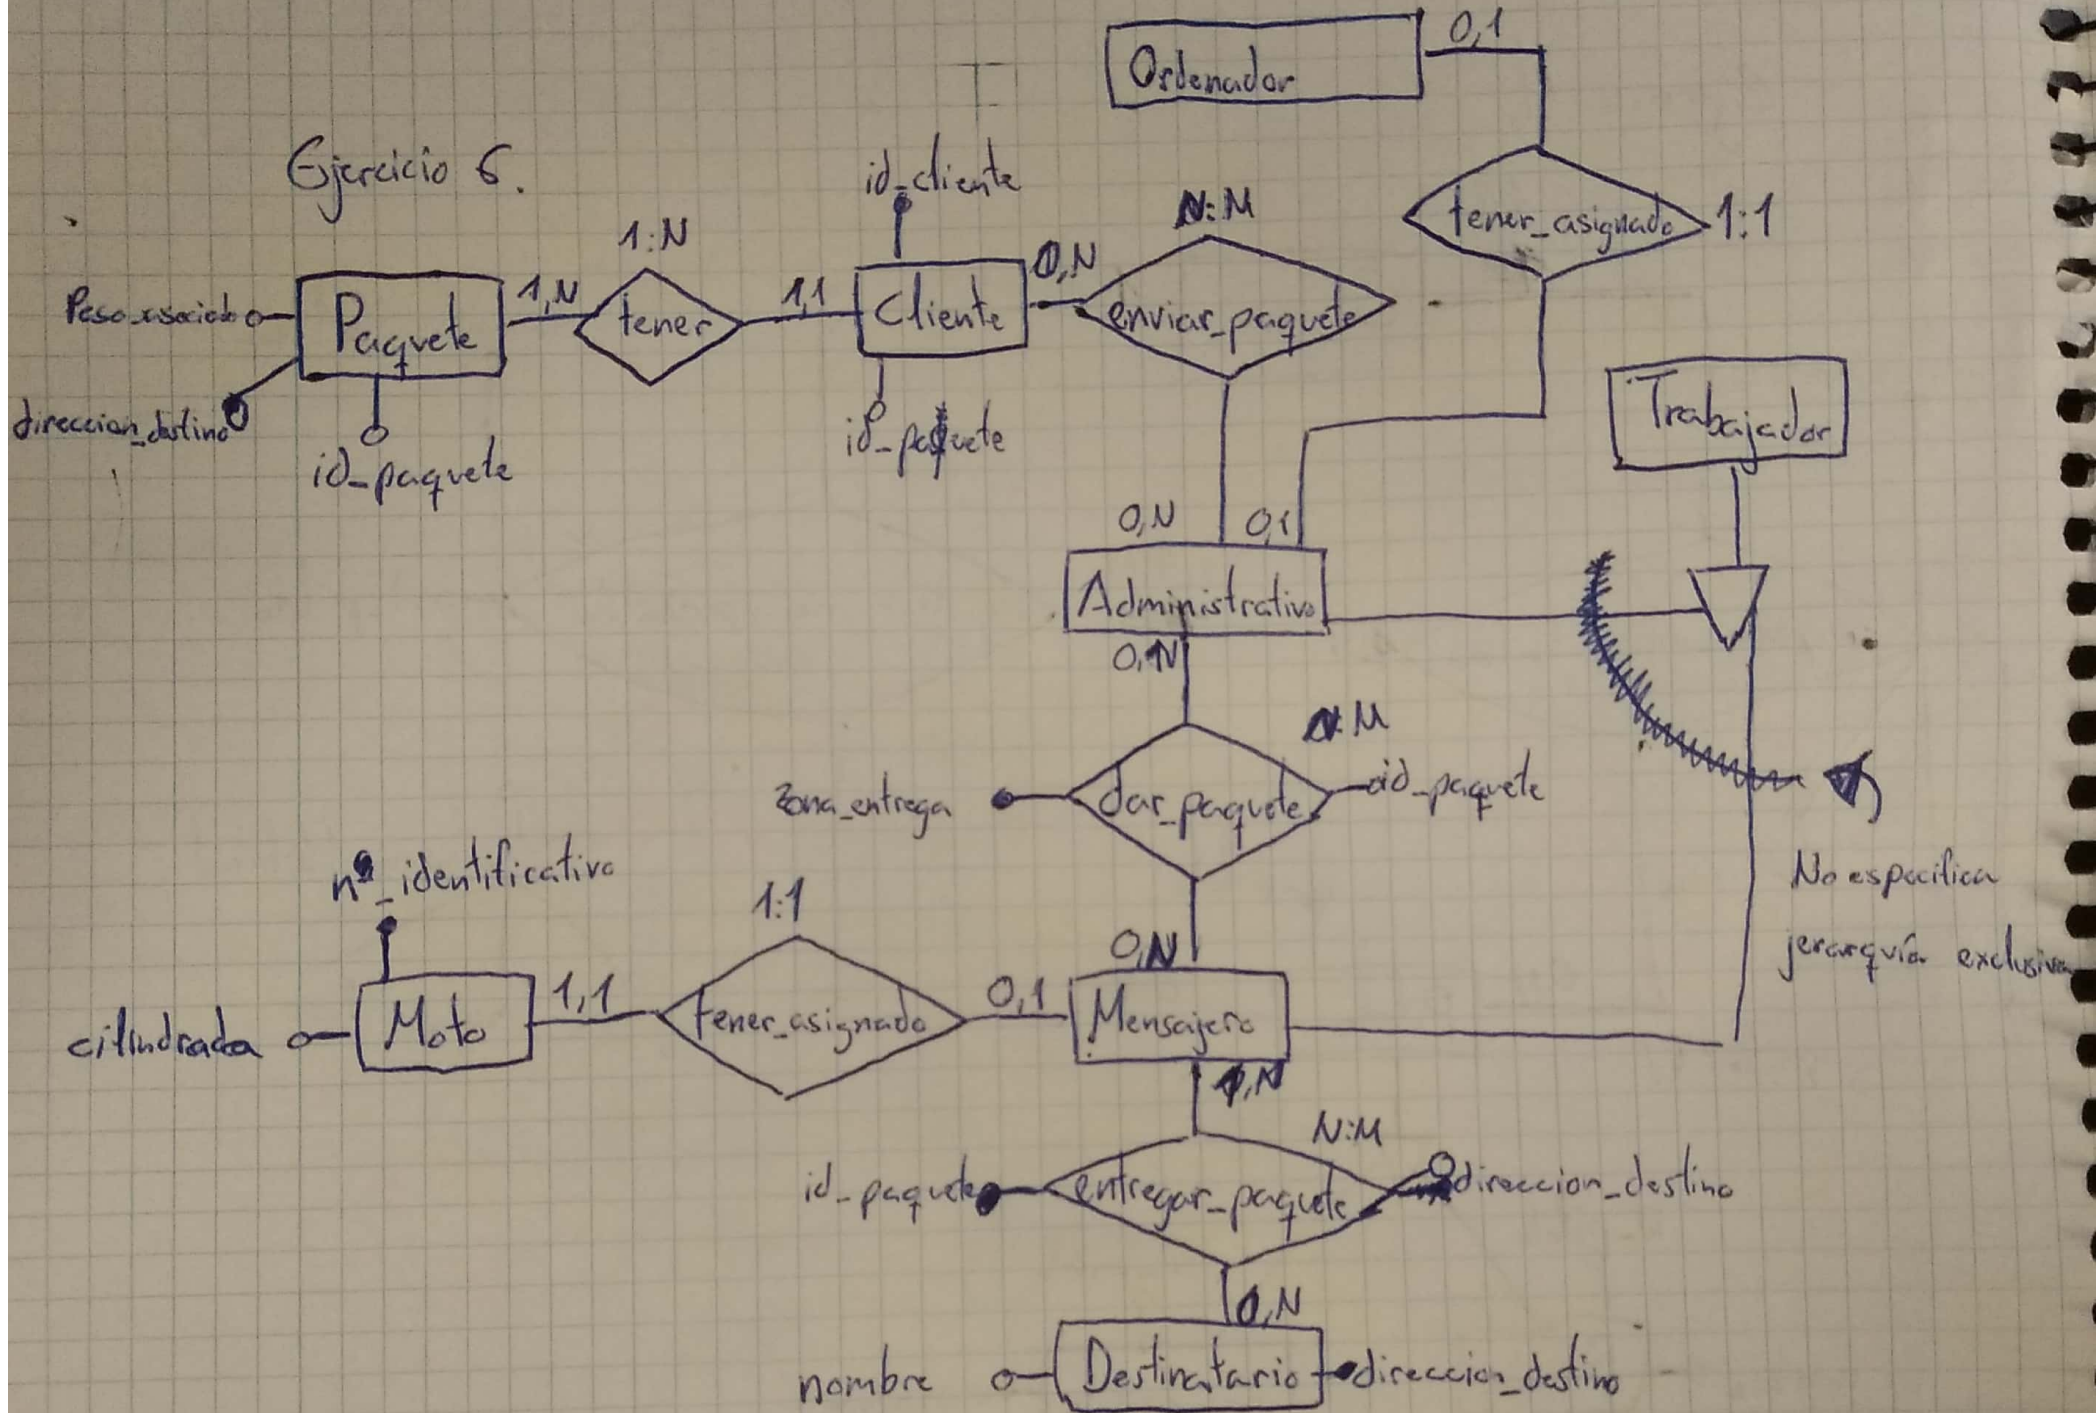 Ordenador
0,1
Ejercicio 6.
id_cliente
N:M
tener_asignado
1:1
1:N
Peso_asociado
Paquete
1,N
tener
1,1
Cliente
0,N
enviar_paquete
Trabajador
direccion_destino
id_paquete
id_paquete
0,N
0,1
Administrativo
0,N
:M
zona_entrega
dar_paquete
id_paquete
nº_identificativo
1:1
No especifica
jerarquía exclusiva
cilindrada
Moto
1,1
tener_asignado
0,1
0,N
Mensajero
,N
N:M
id_paquete
entregar_paquete
direccion_destino
0,N
nombre
Destinatario
direccion_destino